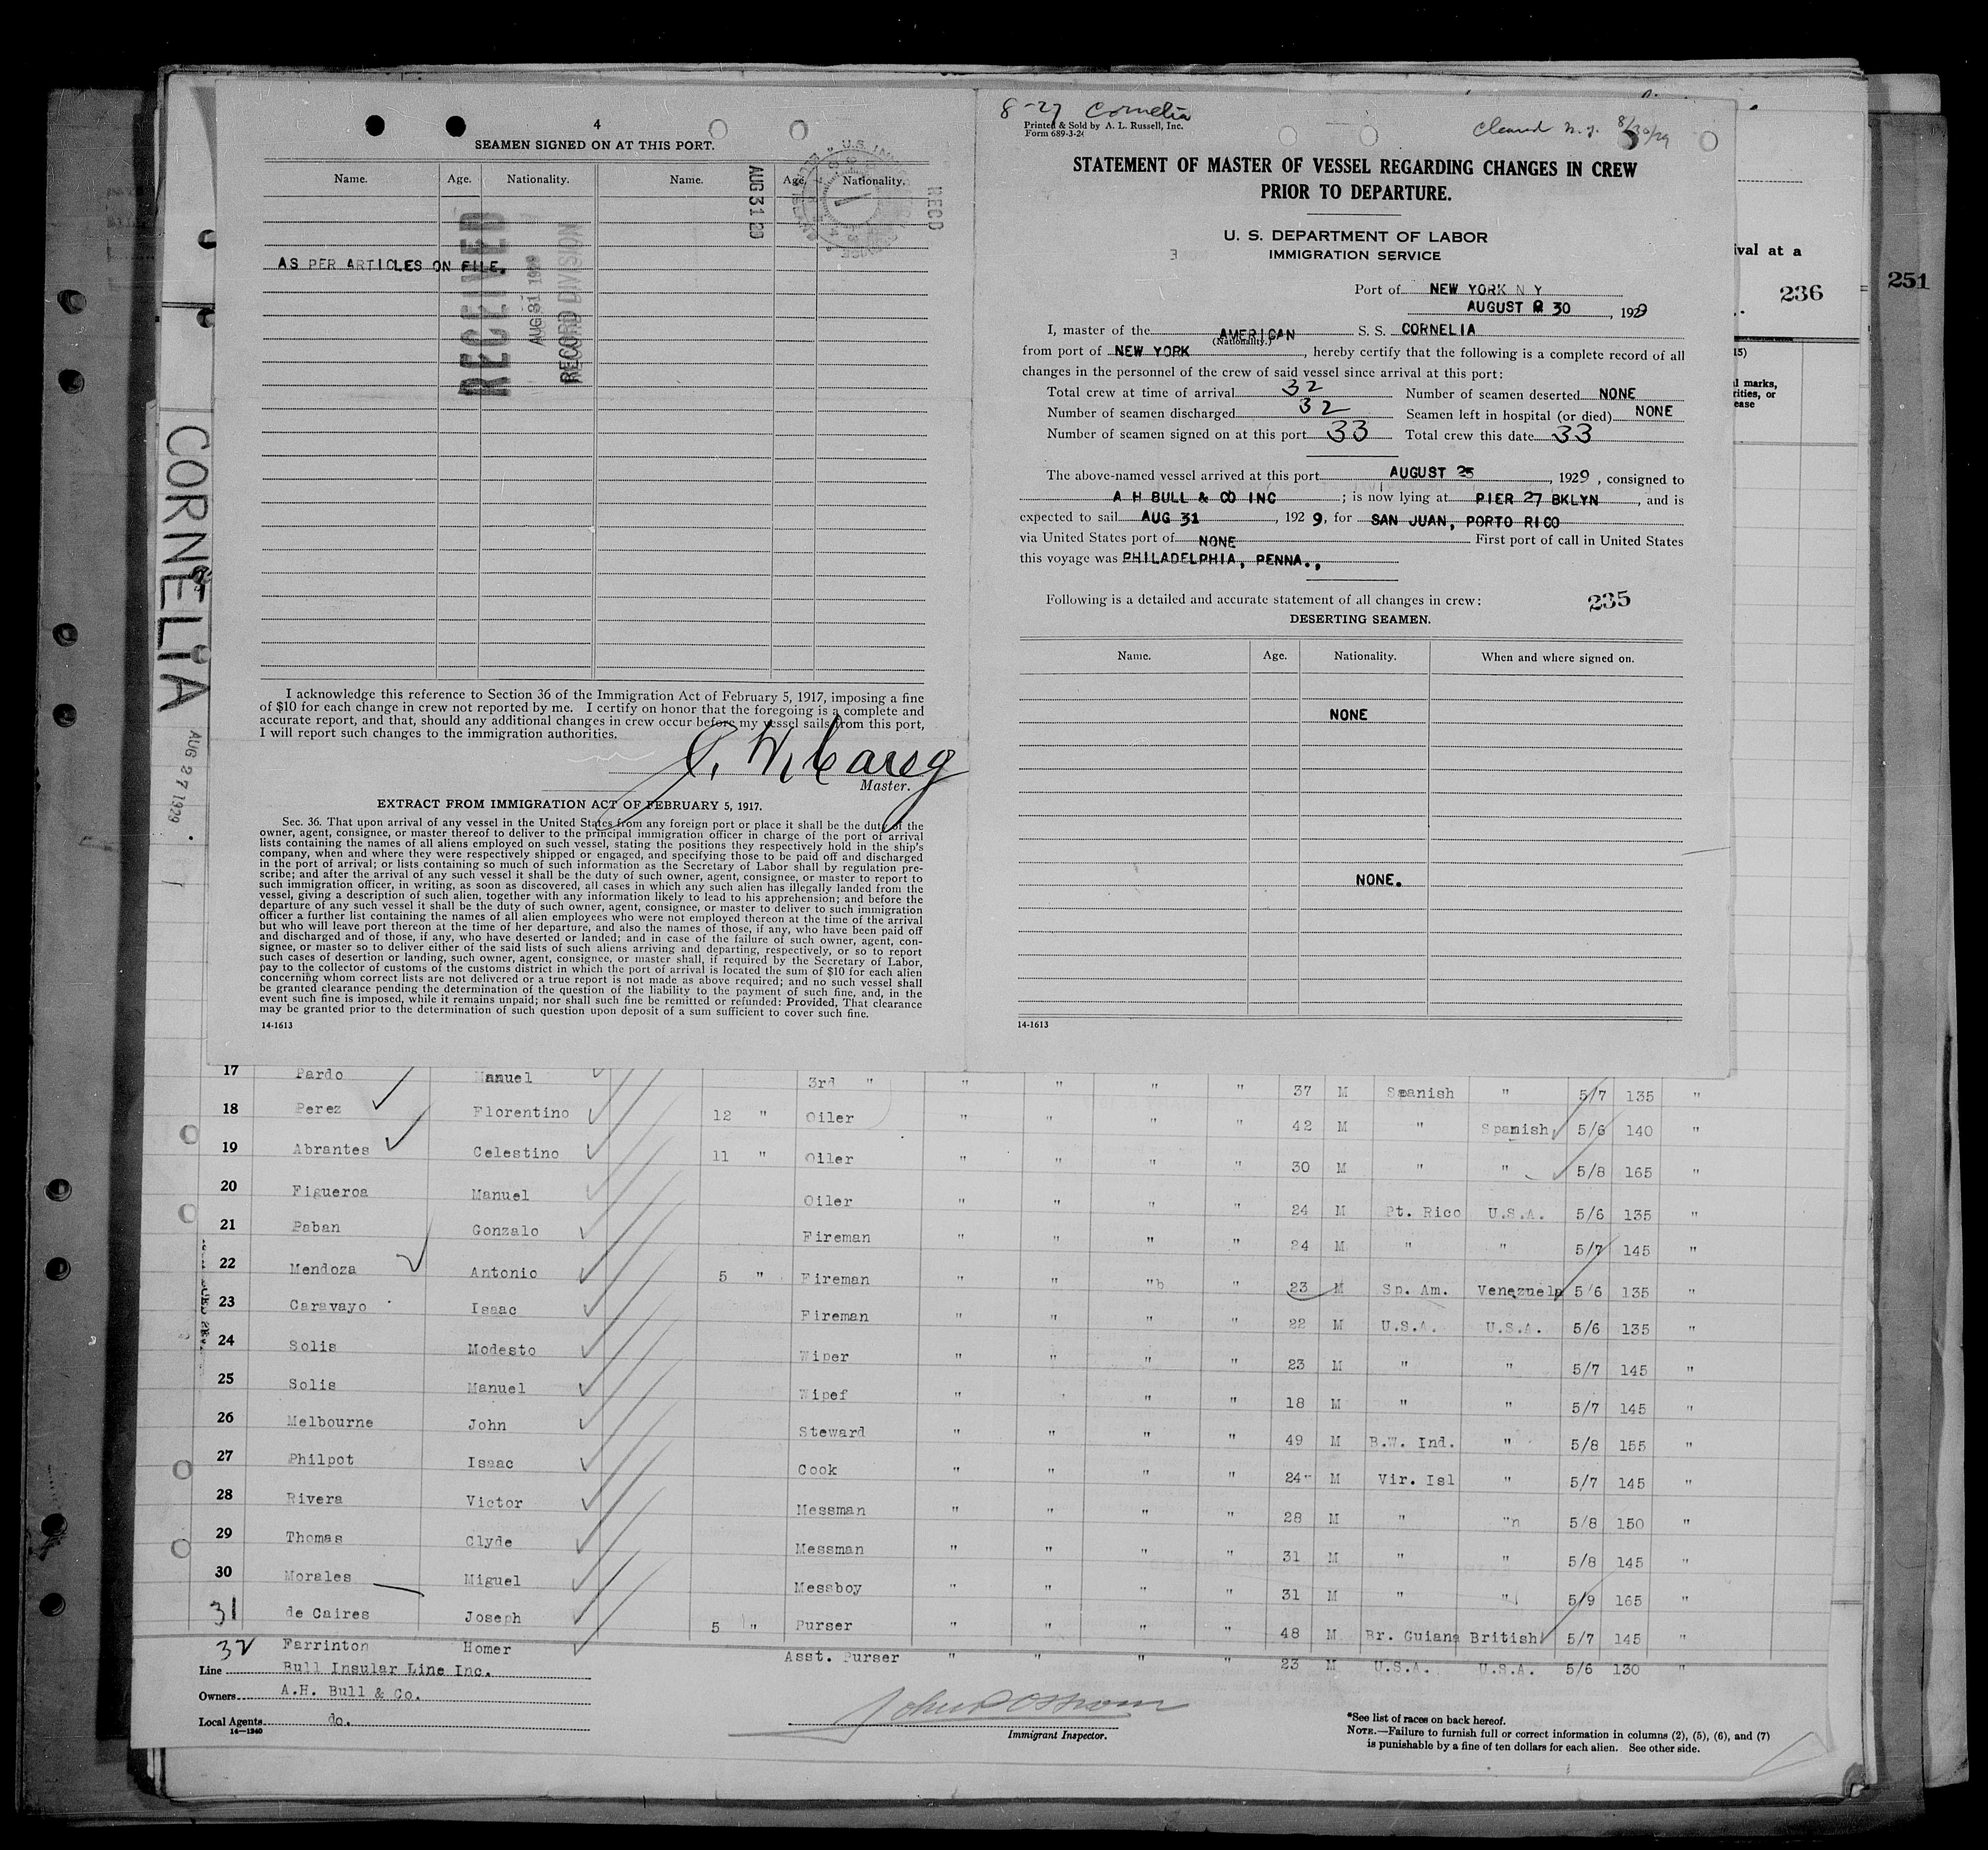 4
SEAMEN SIGNED ON AT THIS PORT.
Name. Age. Nationality. Name. Age. Nationality.
AUG 31 29
RECD
AS PER ARTICLES ON FILE.
RECEIVED
AUG 31 1929
RECORD DIVISION
I acknowledge this reference to Section 36 of the Immigration Act of February 5, 1917, imposing a fine
of $10 for each change in crew not reported by me. I certify on honor that the foregoing is a complete and
accurate report, and that, should any additional changes in crew occur before my vessel sails from this port,
I will report such changes to the immigration authorities.
Master.
EXTRACT FROM IMMIGRATION ACT OF FEBRUARY 5, 1917.
Sec. 36. That upon arrival of any vessel in the United States from any foreign port or place it shall be the duty of the
owner, agent, consignee, or master thereof to deliver to the principal immigration officer in charge of the port of arrival
lists containing the names of all aliens employed on such vessel, stating the positions they respectively hold in the ship's
company, when and where they were respectively shipped or engaged, and specifying those to be paid off and discharged
in the port of arrival; or lists containing so much of such information as the Secretary of Labor shall by regulation pre-
scribe; and after the arrival of any such vessel it shall be the duty of such owner, agent, consignee, or master to report to
such immigration officer, in writing, as soon as discovered, all cases in which any such alien has illegally landed from the
vessel, giving a description of such alien, together with any information likely to lead to his apprehension; and before the
departure of any such vessel it shall be the duty of such owner, agent, consignee, or master to deliver to such immigration
officer a further list containing the names of all alien employees who were not employed thereon at the time of the arrival
but who will leave port thereon at the time of her departure, and also the names of those, if any, who have been paid off
and discharged and of those, if any, who have deserted or landed; and in case of the failure of such owner, agent, con-
signee, or master so to deliver either of the said lists of such aliens arriving and departing, respectively, or so to report
such cases of desertion or landing, such owner, agent, consignee, or master shall, if required by the Secretary of Labor,
pay to the collector of customs of the customs district in which the port of arrival is located the sum of $10 for each alien
concerning whom correct lists are not delivered or a true report is not made as above required; and no such vessel shall
be granted clearance pending the determination of the question of the liability to the payment of such fine, and, in the
event such fine is imposed, while it remains unpaid; nor shall such fine be remitted or refunded: Provided, That clearance
may be granted prior to the determination of such question upon deposit of a sum sufficient to cover such fine.
14-1613
8-27 Cornelia
Printed & Sold by A. L. Russell, Inc.
Form 689-3-26
Cleared N.Y. 8/30/29
STATEMENT OF MASTER OF VESSEL REGARDING CHANGES IN CREW
PRIOR TO DEPARTURE.
U. S. DEPARTMENT OF LABOR
IMMIGRATION SERVICE
Port of NEW YORK N Y
AUGUST 30, 1929
I, master of the AMERICAN S. S. CORNELIA
(Nationality.)
from port of NEW YORK, hereby certify that the following is a complete record of all
changes in the personnel of the crew of said vessel since arrival at this port:
Total crew at time of arrival 32 Number of seamen deserted NONE
Number of seamen discharged 32 Seamen left in hospital (or died) NONE
Number of seamen signed on at this port 33 Total crew this date 33
The above-named vessel arrived at this port AUGUST 25, 1929, consigned to
A H BULL & CO INC; is now lying at PIER 27 BKLYN, and is
expected to sail AUG 31, 1929, for SAN JUAN, PORTO RICO
via United States port of NONE First port of call in United States
this voyage was PHILADELPHIA, PENNA.,
Following is a detailed and accurate statement of all changes in crew: 235
DESERTING SEAMEN.
Name. Age. Nationality. When and where signed on.
NONE
NONE.
14-1613
ival at a
236
251
l marks,
rities, or
ease
CORNELIA
AUG 27 1929
17 Pardo Manuel 3rd " " " " " 37 M Spanish " 5/7 135 "
18 Perez Florentino 12 " Oiler " " " " 42 M " Spanish 5/6 140 "
19 Abrantes Celestino 11 " Oiler " " " " 30 M " " 5/8 165 "
20 Figueroa Manuel Oiler " " " " 24 M Pt. Rico U.S.A. 5/6 135 "
21 Paban Gonzalo Fireman " " " " 24 M " " 5/7 145 "
22 Mendoza Antonio 5 " Fireman " " "b " 23 M Sp. Am. Venezuela 5/6 135 "
23 Caravayo Isaac Fireman " " " " 22 M U.S.A. U.S.A. 5/6 135 "
24 Solis Modesto Wiper " " " " 23 M " " 5/7 145 "
25 Solis Manuel Wipef " " " " 18 M " " 5/7 145 "
26 Melbourne John Steward " " " " 49 M B.W. Ind. " 5/8 155 "
27 Philpot Isaac Cook " " " " 24 M Vir. Isl " 5/7 145 "
28 Rivera Victor Messman " " " " 28 M " "n 5/8 150 "
29 Thomas Clyde Messman " " " " 31 M " " 5/8 145 "
30 Morales Miguel Messboy " " " " 31 M " " 5/9 165 "
31 de Caires Joseph 5 " Purser " " " " 48 M Br. Guiana British 5/7 145 "
32 Farrinton Homer Asst. Purser " " " " 23 M U.S.A. U.S.A. 5/6 130 "
Line Bull Insular Line Inc.
Owners A.H. Bull & Co.
Local Agents do.
14-1240
Immigrant Inspector.
*See list of races on back hereof.
NOTE.—Failure to furnish full or correct information in columns (2), (5), (6), and (7)
is punishable by a fine of ten dollars for each alien. See other side.